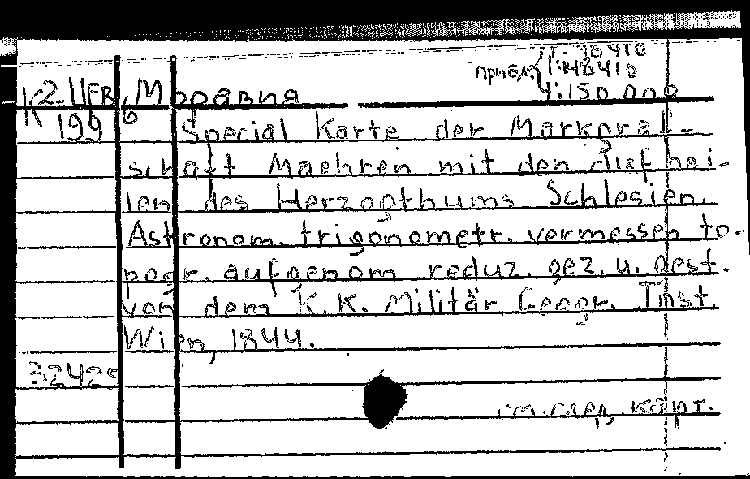 прибл. 1:
1:
К 2-IIER Моравия 1:150.000
199 6 Special Karte der Markgraf-
schaft Maehren mit den
len des Herzogthums Schlesien.
Astronom. trigonometr. vermessen to-
pogr. aufgenom reduz. gez. u. gest.
von dem K. K. Militär Geogr. Inst.
Wien, 1844.
см. след. карт.